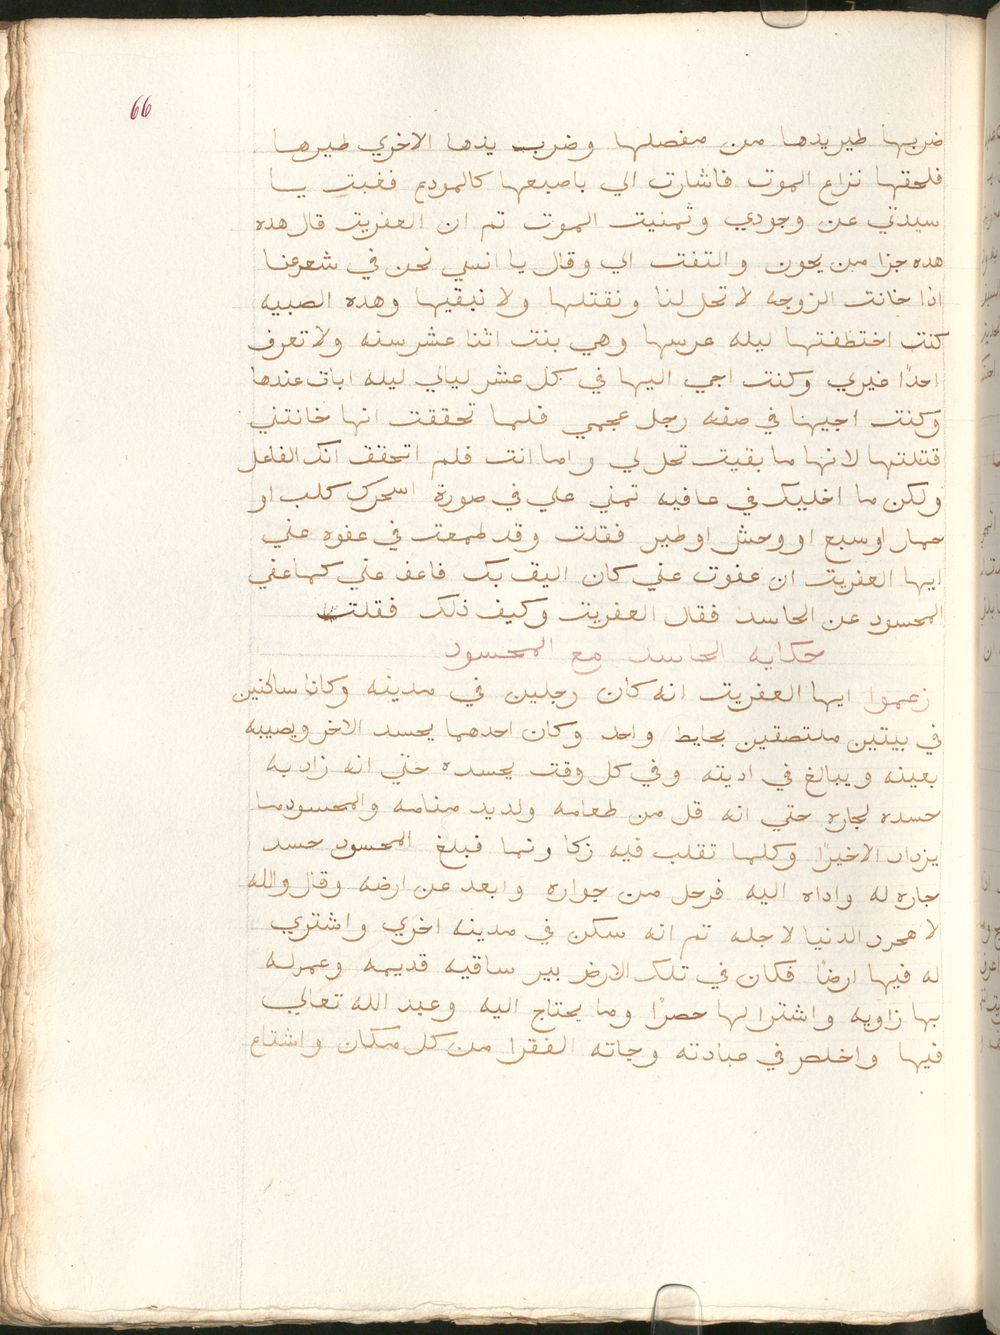 66
ضربها طير يدها من مفصلها وضرب يدها الاخري طيرها
فلحقها نزاع الموت فاشارت الي باصبعها كالمودع فغبت يا
سيدتي عن وجودي وتمنيت الموت تم ان العفريت قال هده
هده جزا من يخون والتفت الي وقال يا انسي نحن في شعرعنا
اذا خانت الزوجه لا تحل لنا ونقتلها ولا نبقيها وهده الصبيه
كنت اختطفتها ليله عرسها وهي بنت اثنا عشر سنه ولا تعرف
احدًا غيري وكنت اجي اليها في كل عشر ليالي ليله ابات عندها
وكنت اجيها في صفه رجل عجمي فلما تحققت انها خانتني
قتلتها لانها ما بقيت تحل لي واما انت فلم اتحقق انك الفاعل
ولكن ما اخليك في عافيه تمني علي في صورة اسحرك كلب او
حمار او سبع او وحش او طير فقلت وقد طمعت في عفوه عني
ايها العفريت ان عفوت عني كان اليف بك فاعف عني كما عفي
المحسود عن الحاسد فقال العفريت وكيف ذلك فقلت
حكايه الحاسد مع المحسود
زعموا ايها العفريت انه كان رجلين في مدينه وكانا ساكنين
في بيتين ملتصقين بحايط واحد وكان احدهما يحسد الاخر ويصيبه
بعينه ويبالغ في اديته وفي كل وقت يحسده حتي انه زاد به
حسده لجاره حتي انه قل من طعامه ولديد منامه والمحسود ما
يزداد الا خيرًا وكلما تقلب فيه زكا ونما فبلغ المحسود حسد
جاره له واداه اليه فرحل من جواره وابعد عن ارضه وقال والله
لا هجرد الدنيا لاجله تم انه سكن في مدينه اخري واشتري
له فيها ارضًا فكان في تلك الارض بير ساقيه قديمه وعمر له
بها زاويه واشترا لها حصرًا وما يحتاج اليه وعبد الله تعالي
فيها واخلص في عبادته وجاته الفقرا من كل مكان واشتاع